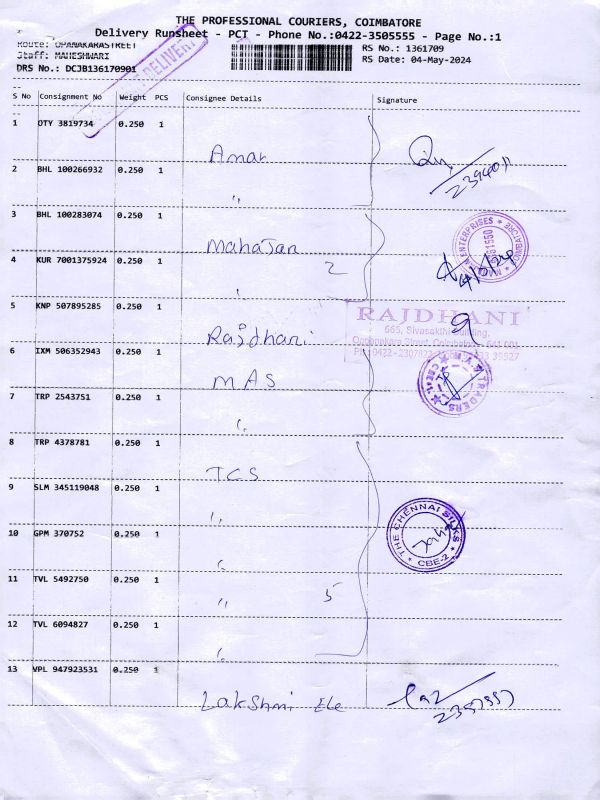 THE PROFESSIONAL COURIERS, COIMBATORE
Delivery Runsheet - PCT - Phone No.:0422-3505555 - Page No.:1
Route: OPANAKARASTREET
Staff: MAHESHWARI
DRS No.: DCJB136170901
RS No.: 1361709
RS Date: 04-May-2024
DELIVERY
S No Consignment No Weight PCS Consignee Details Signature
1 OTY 3819734 0.250 1
Amar
2 BHL 100266932 0.250 1
"
3 BHL 100283074 0.250 1
Mahajan
4 KUR 7001375924 0.250 1
" 2
5 KNP 507895285 0.250 1
Rajdhani
RAJDHANI
665, Sivasakthi Building,
6 IXM 506352943 0.250 1
MAS
7 TRP 2543751 0.250 1
"
8 TRP 4378781 0.250 1
TCS
9 SLM 345119048 0.250 1
"
THE CHENNAI SILKS
CBE-2
10 GPM 370752 0.250 1
"
11 TVL 5492750 0.250 1
" 5
12 TVL 6094827 0.250 1
"
13 VPL 947923531 0.250 1
Lakshmi Ele